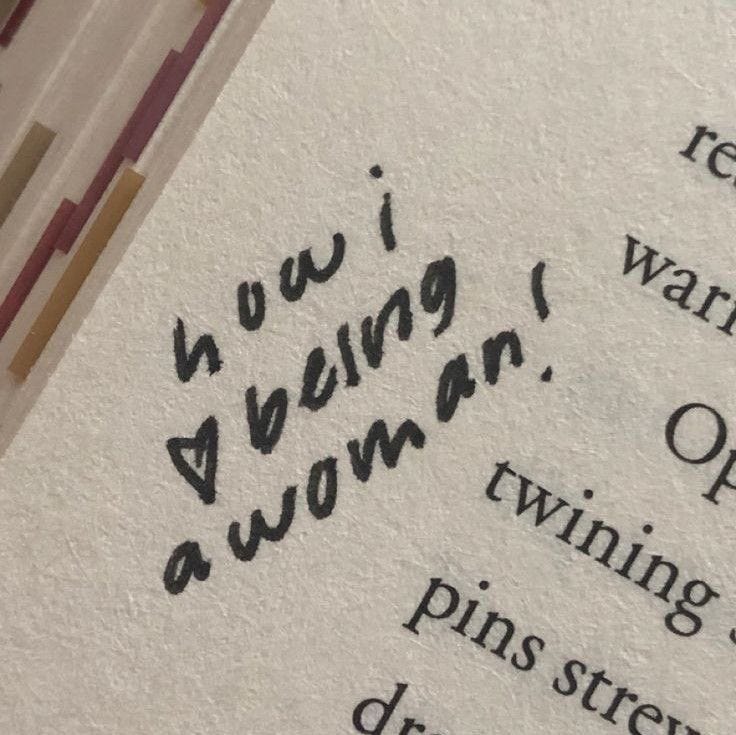 how i
♡ being
a woman!
re
warr
Op
twining
pins strew
dr